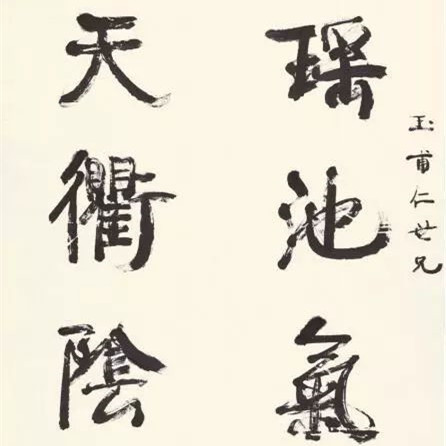 玉甫仁世兄
瑤池氣
天衢陰